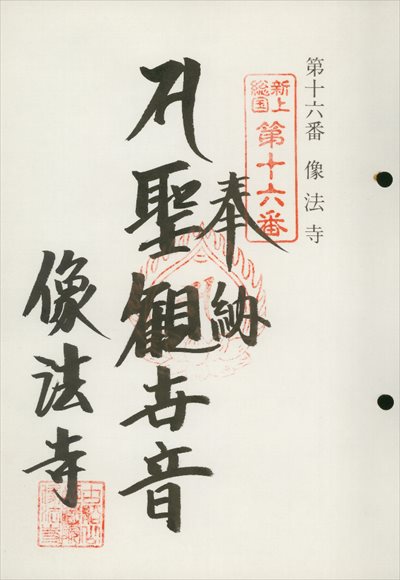 第十六番 像法寺
新上
総国
第十六番
奉納
聖観世音
像法寺